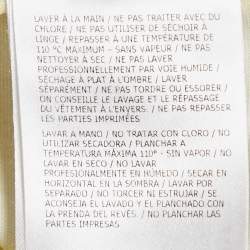 LAVER À LA MAIN / NE PAS TRAITER AVEC DU
CHLORE / NE PAS UTILISER DE SÉCHOIR À
LINGE / REPASSER À UNE TEMPÉRATURE DE
110 °C MAXIMUM – SANS VAPEUR / NE PAS
NETTOYER À SEC / NE PAS LAVER
PROFESSIONNELLEMENT PAR VOIE HUMIDE /
SÉCHAGE À PLAT À L'OMBRE / LAVER
SÉPARÉMENT / NE PAS TORDRE OU ESSORER /
ON CONSEILLE LE LAVAGE ET LE REPASSAGE
DU VÊTEMENT À L'ENVERS. / NE PAS REPASSER
LES PARTIES IMPRIMÉES
LAVAR A MANO / NO TRATAR CON CLORO / NO
UTILIZAR SECADORA / PLANCHAR A
TEMPERATURA MÁXIMA 110° - SIN VAPOR / NO
LAVAR EN SECO / NO LAVAR
PROFESIONALMENTE EN HÚMEDO / SECAR EN
HORIZONTAL EN LA SOMBRA / LAVAR POR
SEPARADO / NO TORCER NI ESTRUJAR / SE
ACONSEJA EL LAVADO Y EL PLANCHADO CON
LA PRENDA DEL REVÉS. / NO PLANCHAR LAS
PARTES IMPRESAS